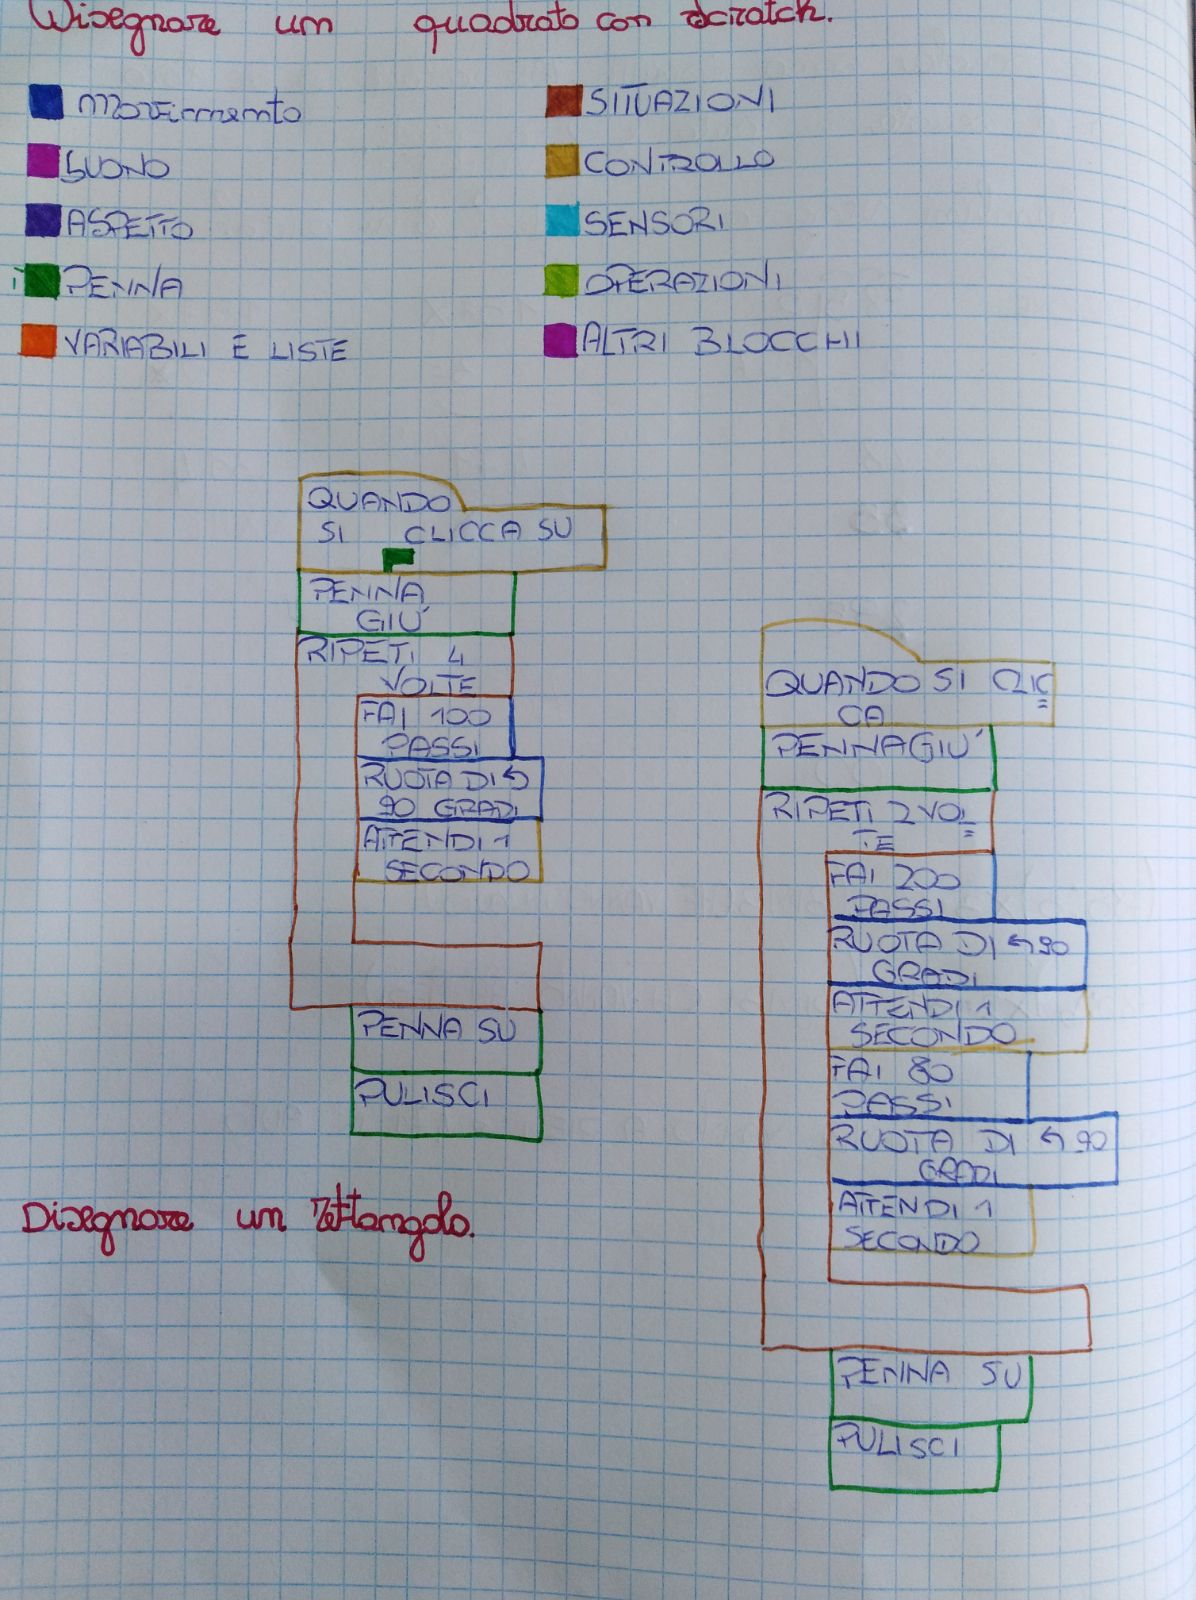 Disegnare un quadrato con scratch.
movimento
SUONO
ASPETTO
PENNA
VARIABILI E LISTE
SITUAZIONI
CONTROLLO
SENSORI
OPERAZIONI
ALTRI BLOCCHI
QUANDO
SI CLICCA SU
PENNA
GIU'
RIPETI 4
VOLTE
FAI 100
PASSI
RUOTA DI ↶
90 GRADI
ATTENDI 1
SECONDO
PENNA SU
PULISCI
Disegnare un rettangolo.
QUANDO SI CLIC
CA
PENNA GIU'
RIPETI 2 VOL
TE
FAI 200
PASSI
RUOTA DI ↶ 90
GRADI
ATTENDI 1
SECONDO
FAI 80
PASSI
RUOTA DI ↶ 90
GRADI
ATTENDI 1
SECONDO
PENNA SU
PULISCI